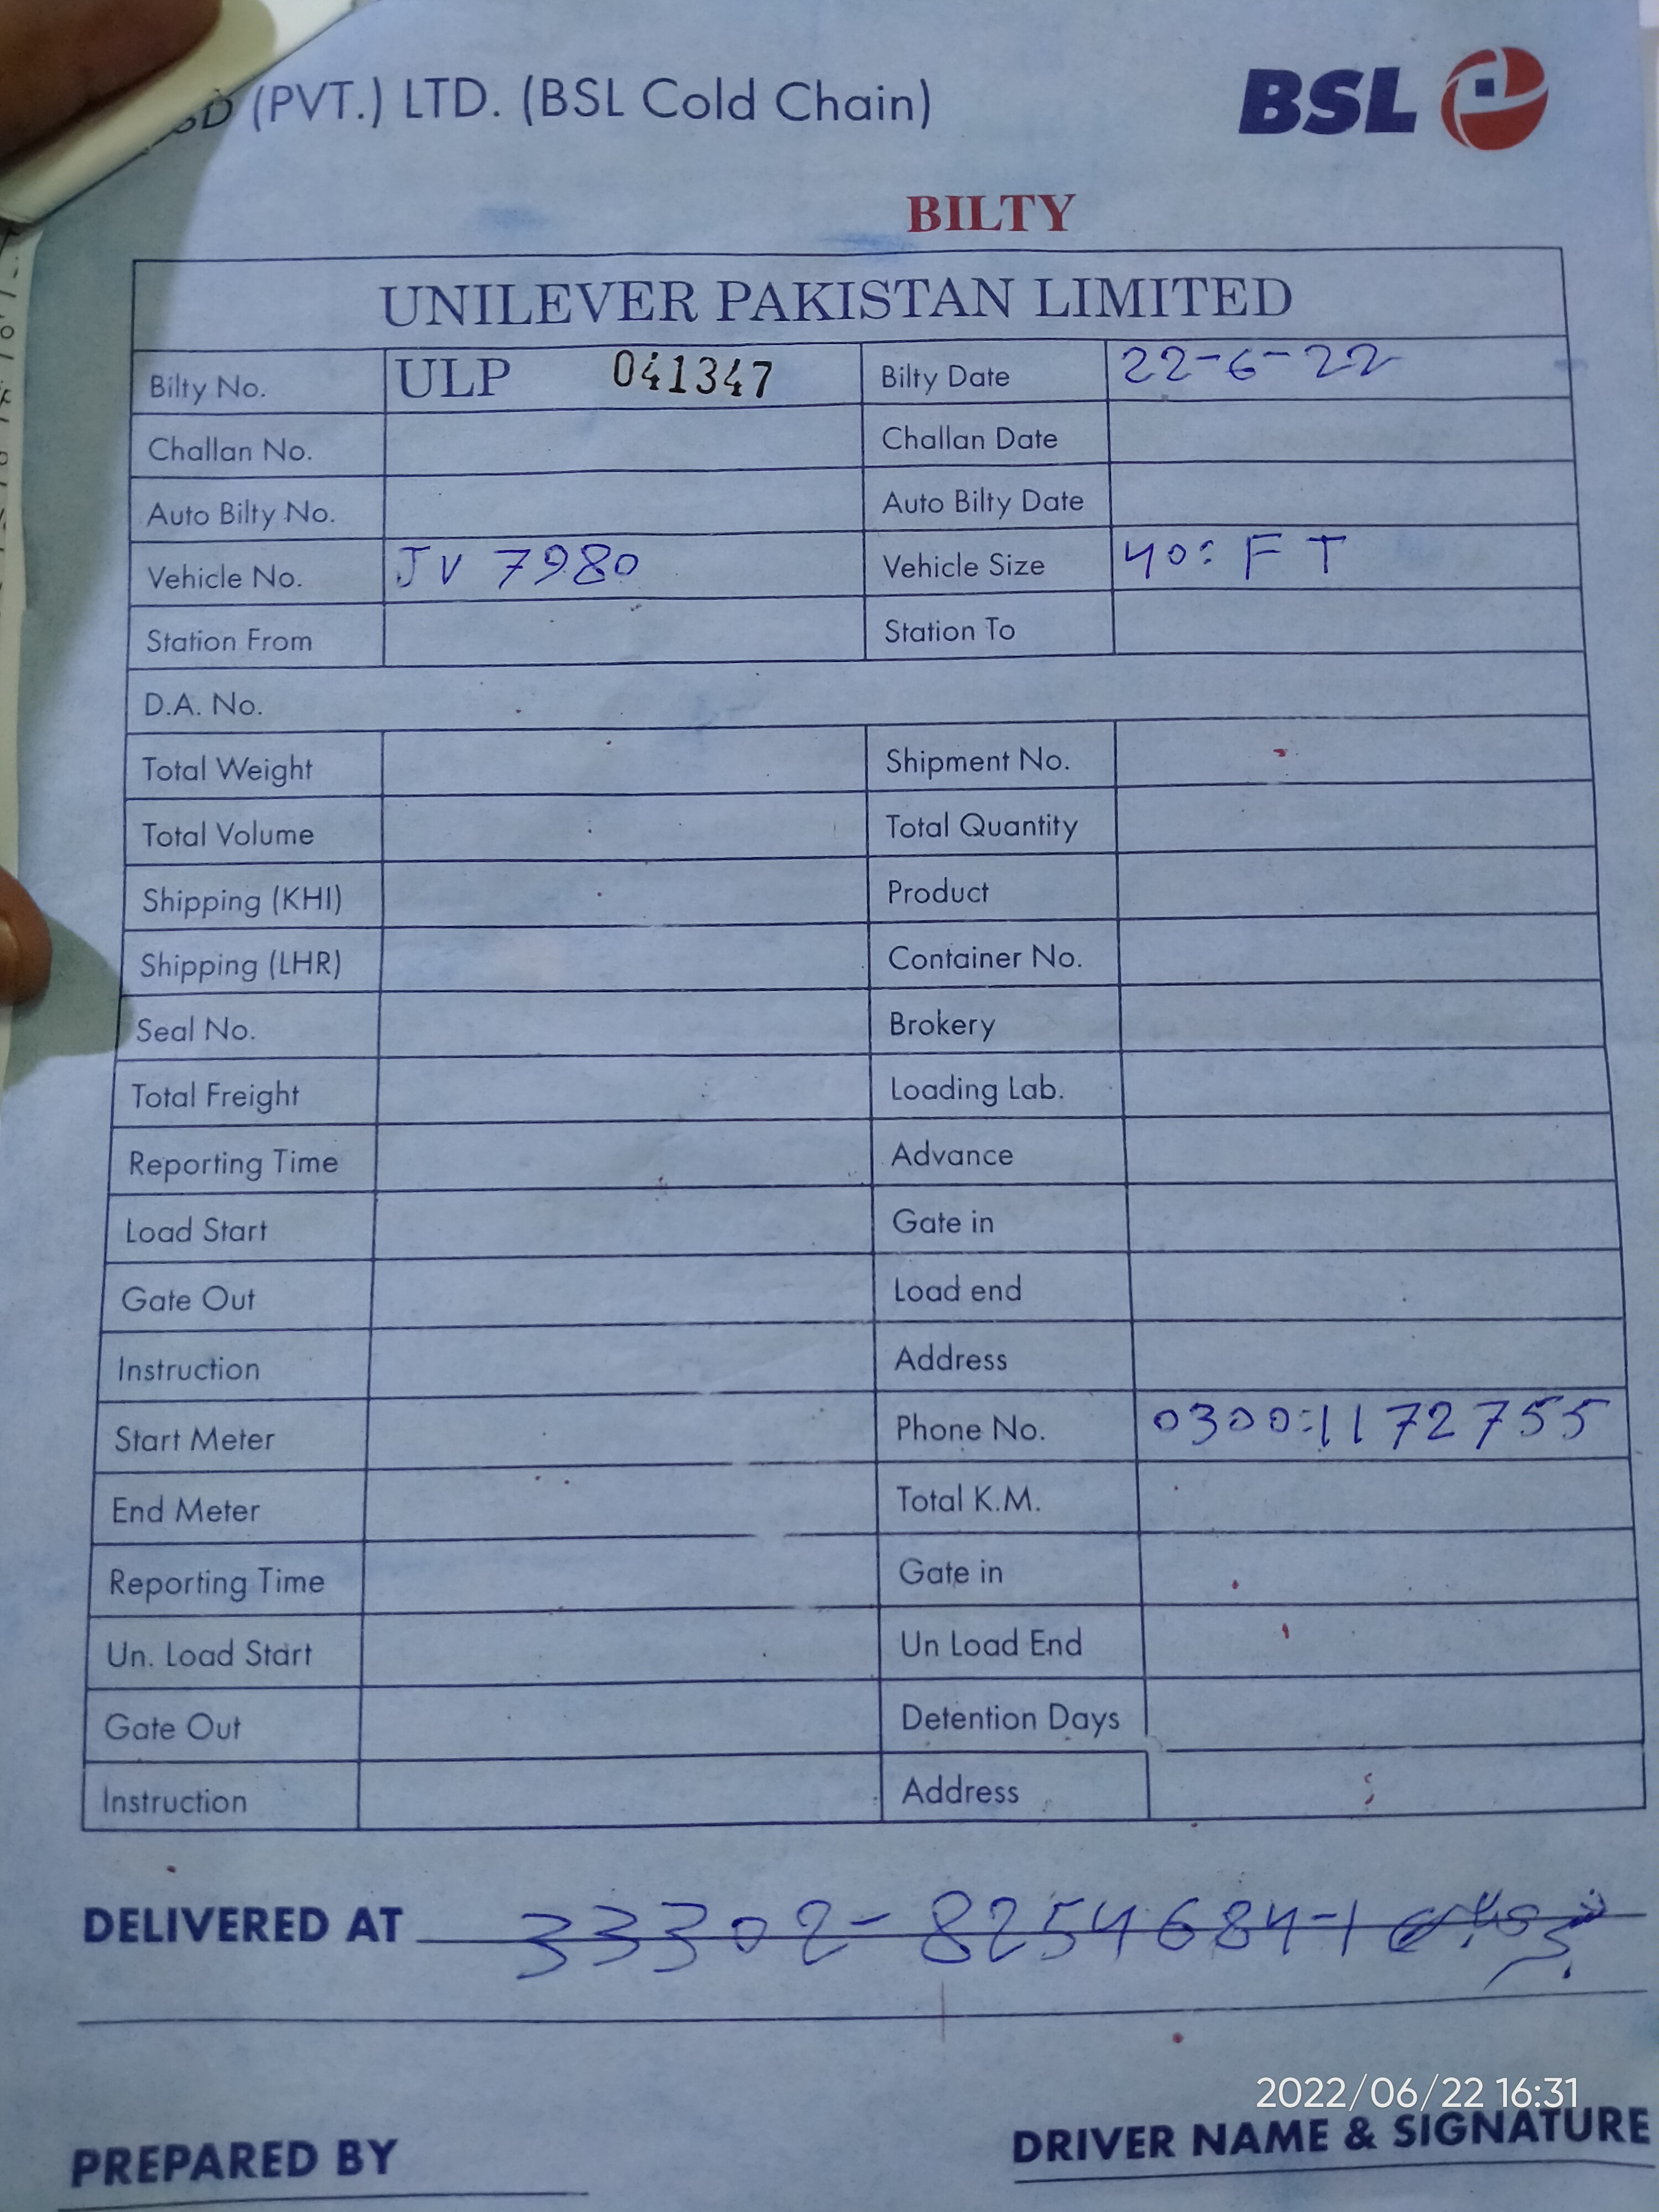 (PVT.) LTD. (BSL Cold Chain) BSL
BILTY
UNILEVER PAKISTAN LIMITED
Bilty No. ULP 041347 Bilty Date 22-6-22
Challan No. Challan Date
Auto Bilty No. Auto Bilty Date
Vehicle No. JV 7980 Vehicle Size 40: FT
Station From Station To
D.A. No.
Total Weight Shipment No.
Total Volume Total Quantity
Shipping (KHI) Product
Shipping (LHR) Container No.
Seal No. Brokery
Total Freight Loading Lab.
Reporting Time Advance
Load Start Gate in
Gate Out Load end
Instruction Address
Start Meter Phone No. 0300:1172755
End Meter Total K.M.
Reporting Time Gate in
Un. Load Start Un Load End
Gate Out Detention Days
Instruction Address
DELIVERED AT 33302-8254684-1
2022/06/22 16:31
PREPARED BY DRIVER NAME & SIGNATURE